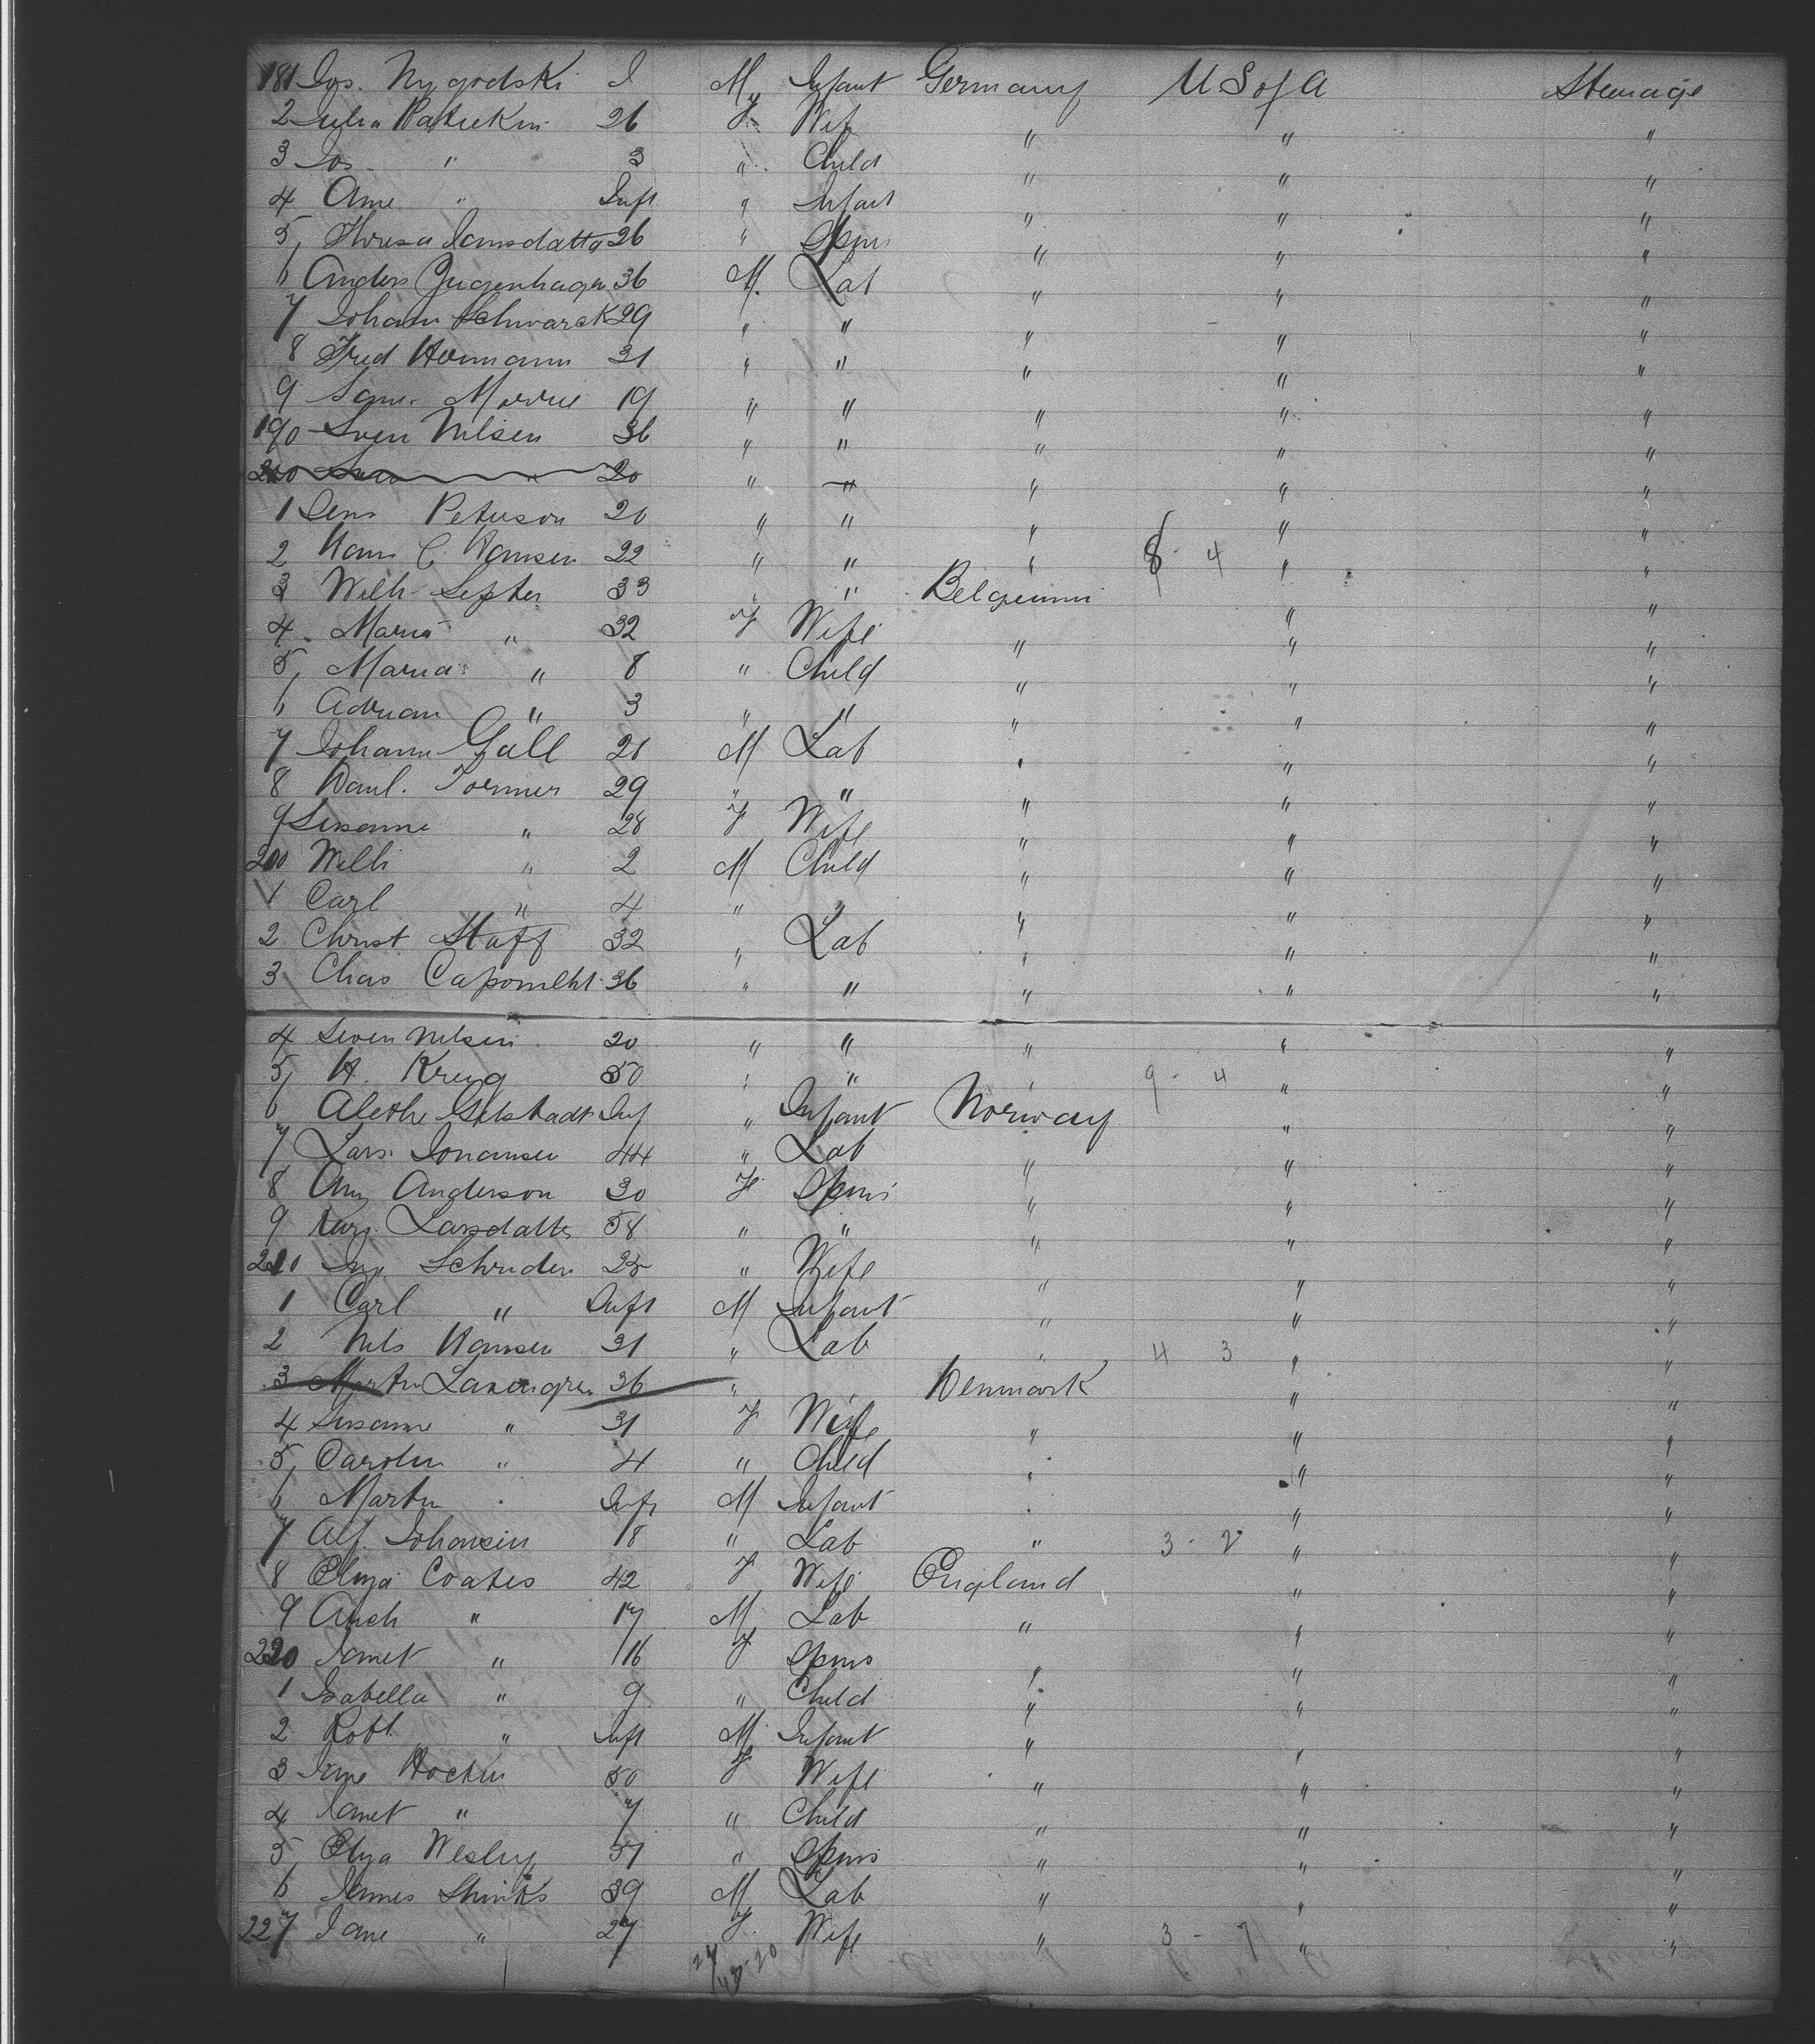 181 Jos. Nygodski I M Infant Germany U S of A Steerage
2 Julia 26 F Wife " " "
3 Jos " 3 " Child " " "
4 Ame " Inft " Infant " " "
5, Thresa Jansdatta 26 " Spins " " "
6 Anders 36 M. Lab " " "
7 Johann Schwarck 29 " " " " "
8 Fred Hermann 31 " " " " "
9 Morris 19 " " " " "
190 Sven Nilsen 36 " " " " "
200 Sven " 20 " " " " "
1 Jens Peterson 20 " " " " "
2 Hans C. Hansen 22 " " " 8 - 4 " "
3 Wilh Septer 33 " " Belgiumm " "
4. Maria " 32 F Wife " " "
5, Maria " 8 " Child " " "
6 Adrian " 3 " " " " "
7 Johann Gall 21 M Lab " " "
8 Danl. Tormer 29 " " " " "
9 Susanne " 28 F Wife " " "
200 Willi " 2 M Child " " "
1 Carl " 4 " " " " "
2 Christ Staff 32 " Lab " " "
3 Chas 36 " " " " "
4 Seven Nelsen 20 " " " " "
5, H. Krug 50 " " " 9 - 4 " "
6 Alethe Inf " Infant Norway " "
7 Lars Johansen 44 " Lab " " "
8 Any Anderson 30 F Spins " " "
9 Larsdatter 58 " " " " "
210 Ing. Schruden 25 " Wife " " "
1 Carl " Inft M Infant " " "
2 Nils Hansen 31 " Lab " 4 3 " "
3 Martin 36 " Denmark " "
4 Susanne " 31 F Wife " " "
5, Carolin " 4 " Child " " "
6 Martin " Inft M Infant " " "
7 Alf. Johansen 18 " Lab " 3 - 2 " "
8 Eliza Coates 42 F Wife England " "
9 Arch " 17 M Lab " " "
220 Janet " 16 F Spins " " "
1 Isabella " 9 " Child " " "
2 Robt " Inft M Infant " " "
3 Jane Hocken 50 F Wife " " "
4 Janet " 7 " Child " " "
5, Eliza Wesley 51 " Spins " " "
6 James Shinks 39 M Lab " " "
227 Jane " 27 F Wife " 3 - 7 " "